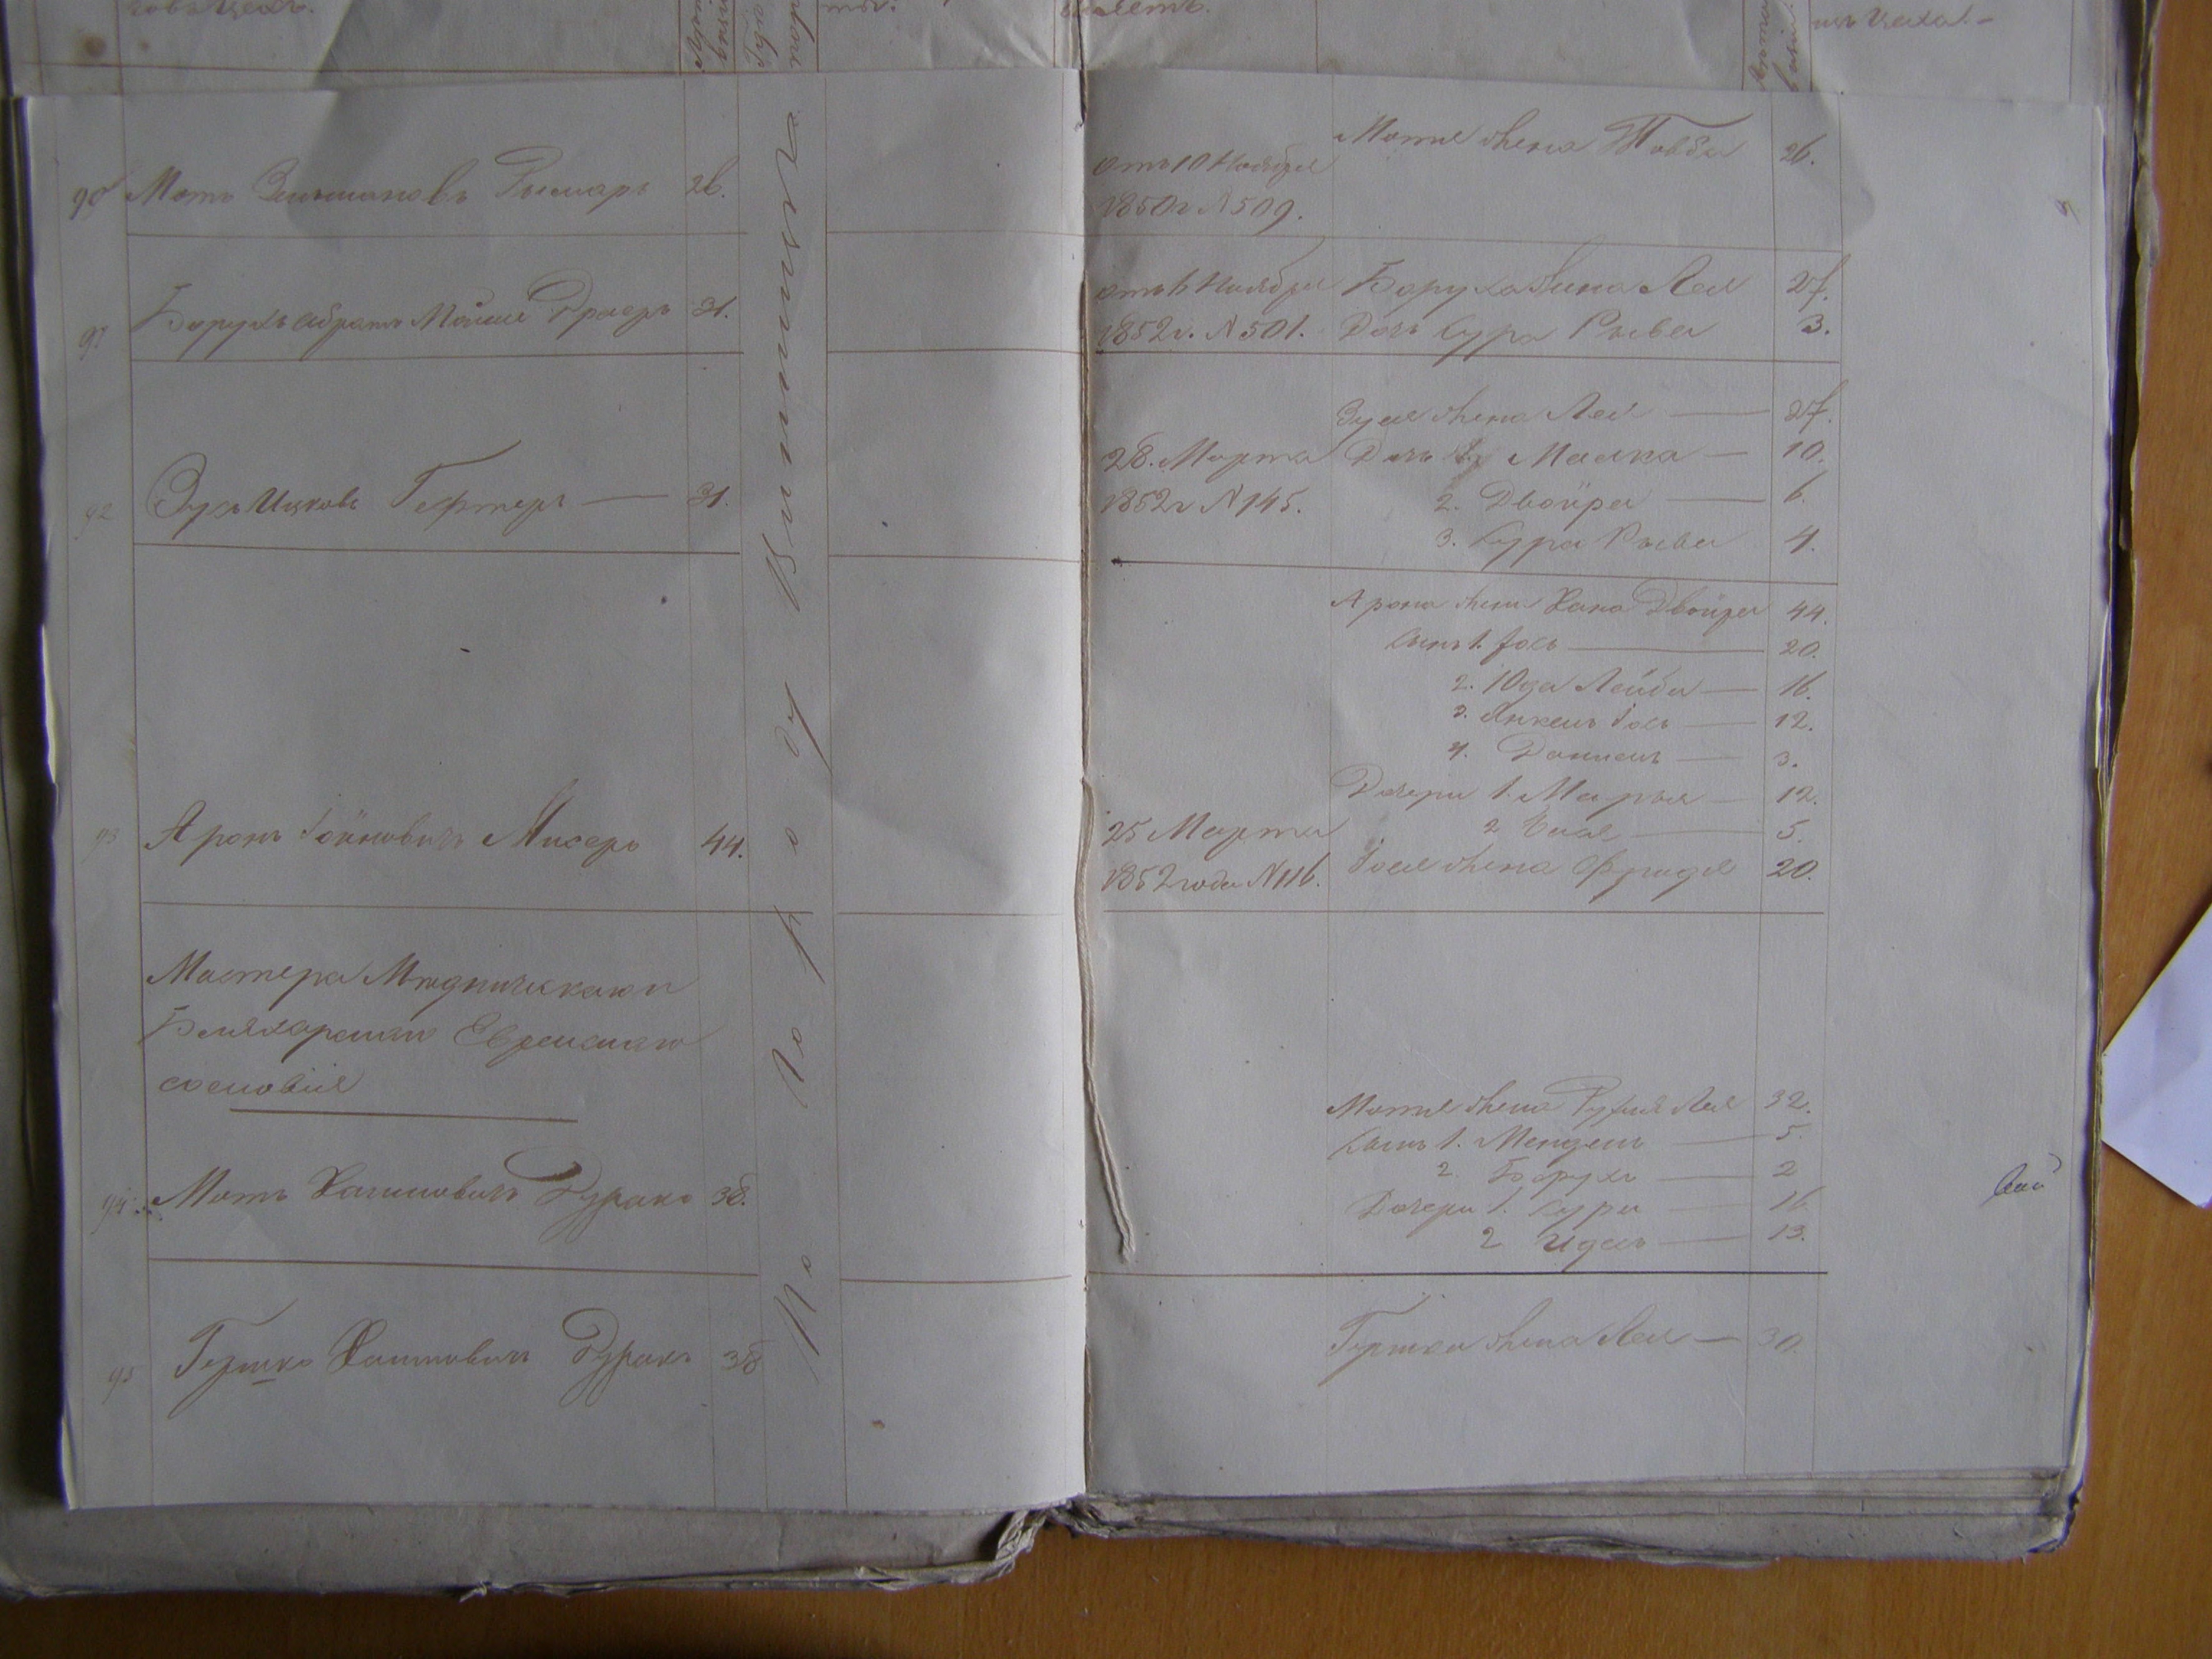 90 Мотъ Зельмановъ Рымарь 26.
91 Борухъ Абрамъ Мошко Драеръ 31.
92 Зусь Ицковъ Гефтеръ — 31.
93 Аронъ Мисеръ 44.
Мастера Мѣдническаго и
Бляхарскаго Еврейскаго
сословія
94 Мотъ Хаимовичъ Дуракъ 38.
95 Гершко Хаимовичъ Дуракъ 38
По городу Виннице
Мотя жена Товба 26.
отъ 10 Ноября
1850 г N 509.
отъ 6 Ноября Боруха жена Лея 27.
1852 г. N 501. Дочь Сура Рыва 3.
Зуся жена Лея — 27.
28. Марта Дочь 1. Малка — 10.
1852 г N 145. 2. Двойра — 6.
3. Сура Рыва 4.
Арона жена Хана Двойра 44.
Сынъ 1. Іось — 20.
2. Юда Лейба — 16.
3. Янкель Іось — 12.
4. Даниель — 3.
Дочери 1. Марья — 12.
25 Марта 2 — 5.
1852 года N 116. Іося жена Фрейда 20.
Мотя жена Рухля Лея 32.
Сынъ 1. Мендель — 5.
2. Борухъ — 2
Дочери 1. Сура — 16
2 Идесь — 13.
Гершка жена Лея — 30.